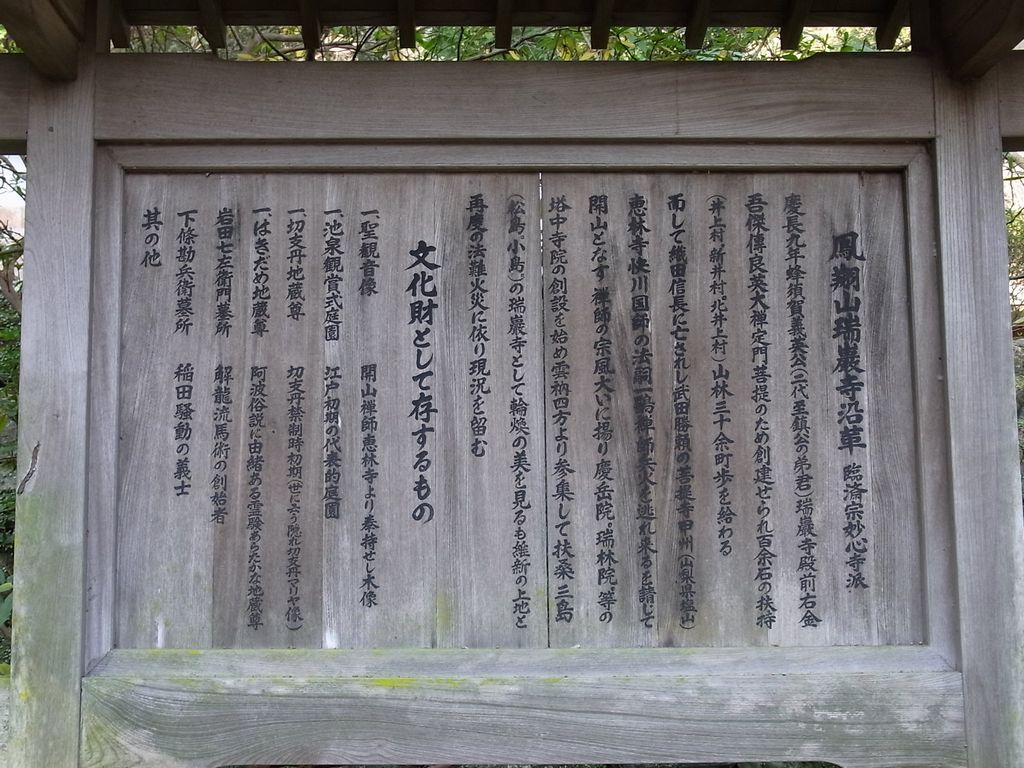 鳳翔山瑞巖寺沿革 臨済宗妙心寺派
慶長九年蜂須賀義英公(二代至鎮公の弟君)瑞巖寺殿前右金
吾傑傳良英大禅定門菩提のため創建せられ百余石の扶持
(井上村新井村。北井上村)山林三十余町歩を給わる
而して織田信長に亡されし武田勝頼の菩提寺甲州(山梨県塩山)
恵林寺快川国師の法嗣一鶚禅師兵火を逃れ来るを請じて
開山となす 禅師の宗風大いに揚り慶岳院。瑞林院。等の
塔中寺院の創設を始め雲衲四方より参集して扶桑三島
(松島。小島)。の瑞巖寺として輪煥の美を見るも維新の上地と
再度の法難火災に依り現況を留む
文化財として存するもの
一、聖観音像 開山禅師恵林寺より奉持せし木像
一、池泉観賞式庭園 江戸初期の代表的庭園
一、切支丹地蔵尊 切支丹禁制時初期(世に云う隠れ切支丹マリヤ像)
一、はきだめ地蔵尊 阿波俗説に由緒ある霊験あらたかな地蔵尊
岩田七左衛門墓所 解龍流馬術の創始者
下條勘兵衛墓所 稲田騒動の義士
其の他